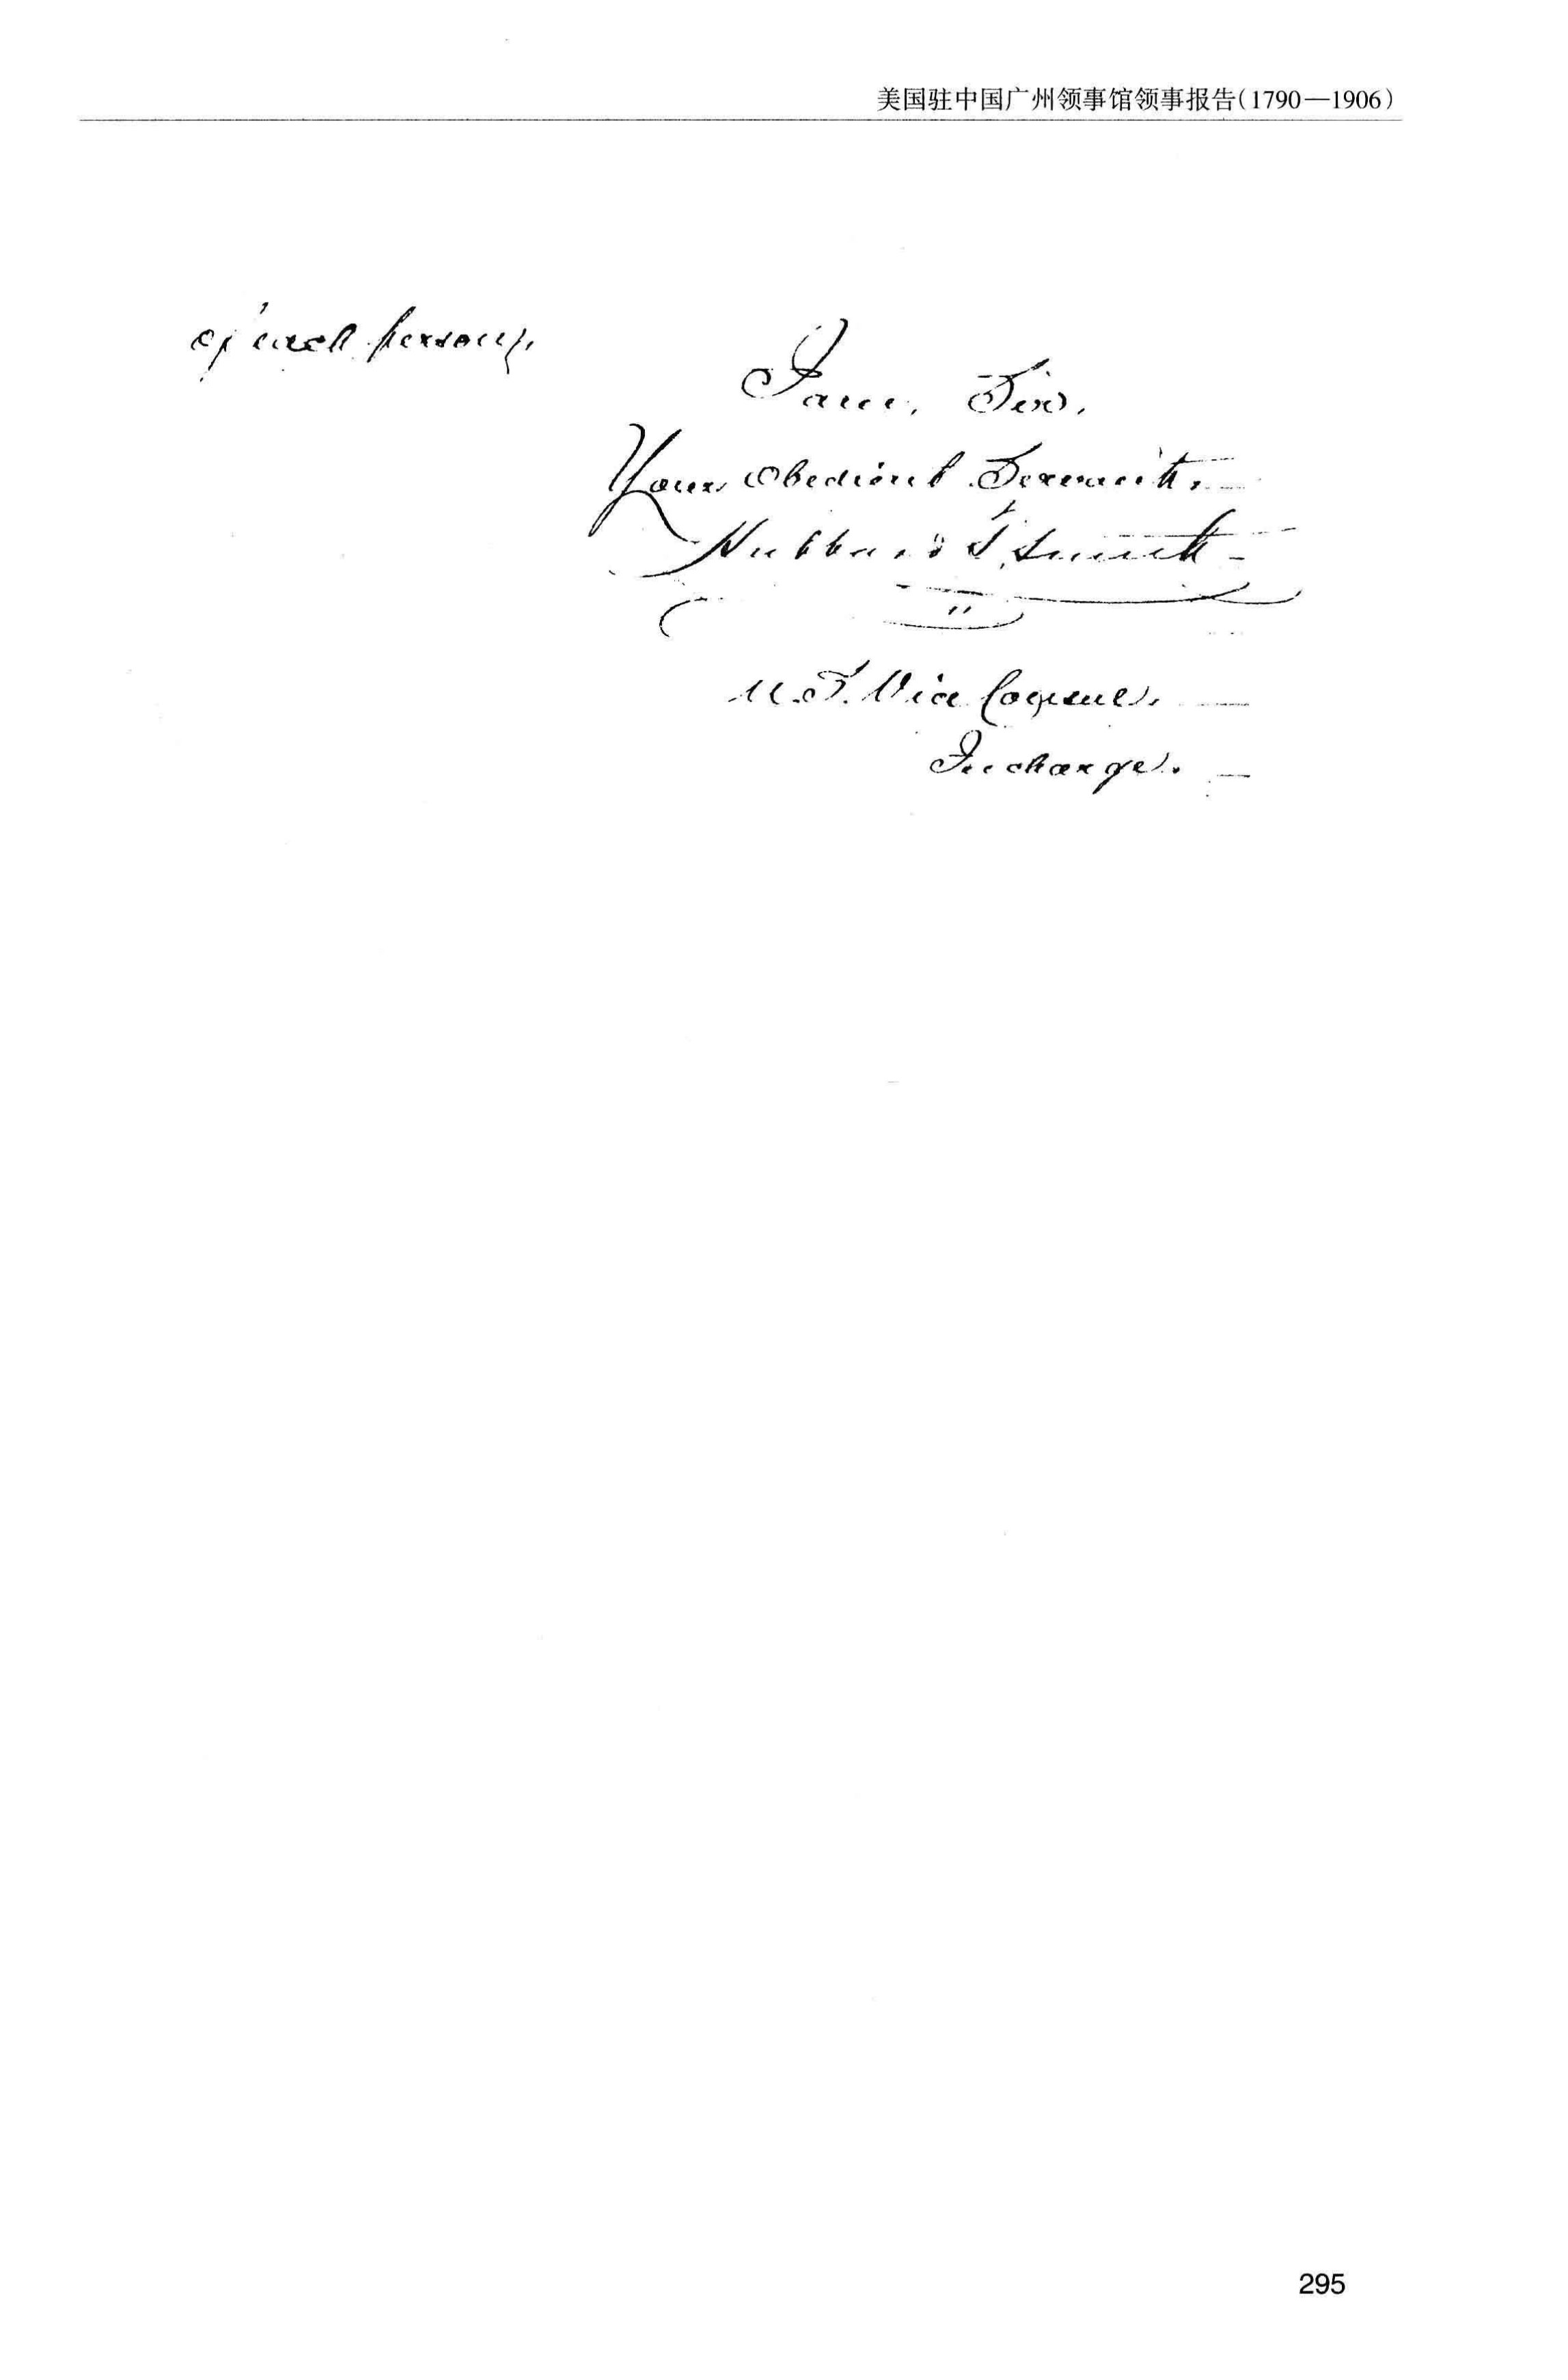 美国驻中国广州领事馆领事报告(1790—1906)
of each person,
I am, Sir,
Your Obedient Servant,
Hubbard T. Smith
U.S. Vice Consul,
In charge.
295